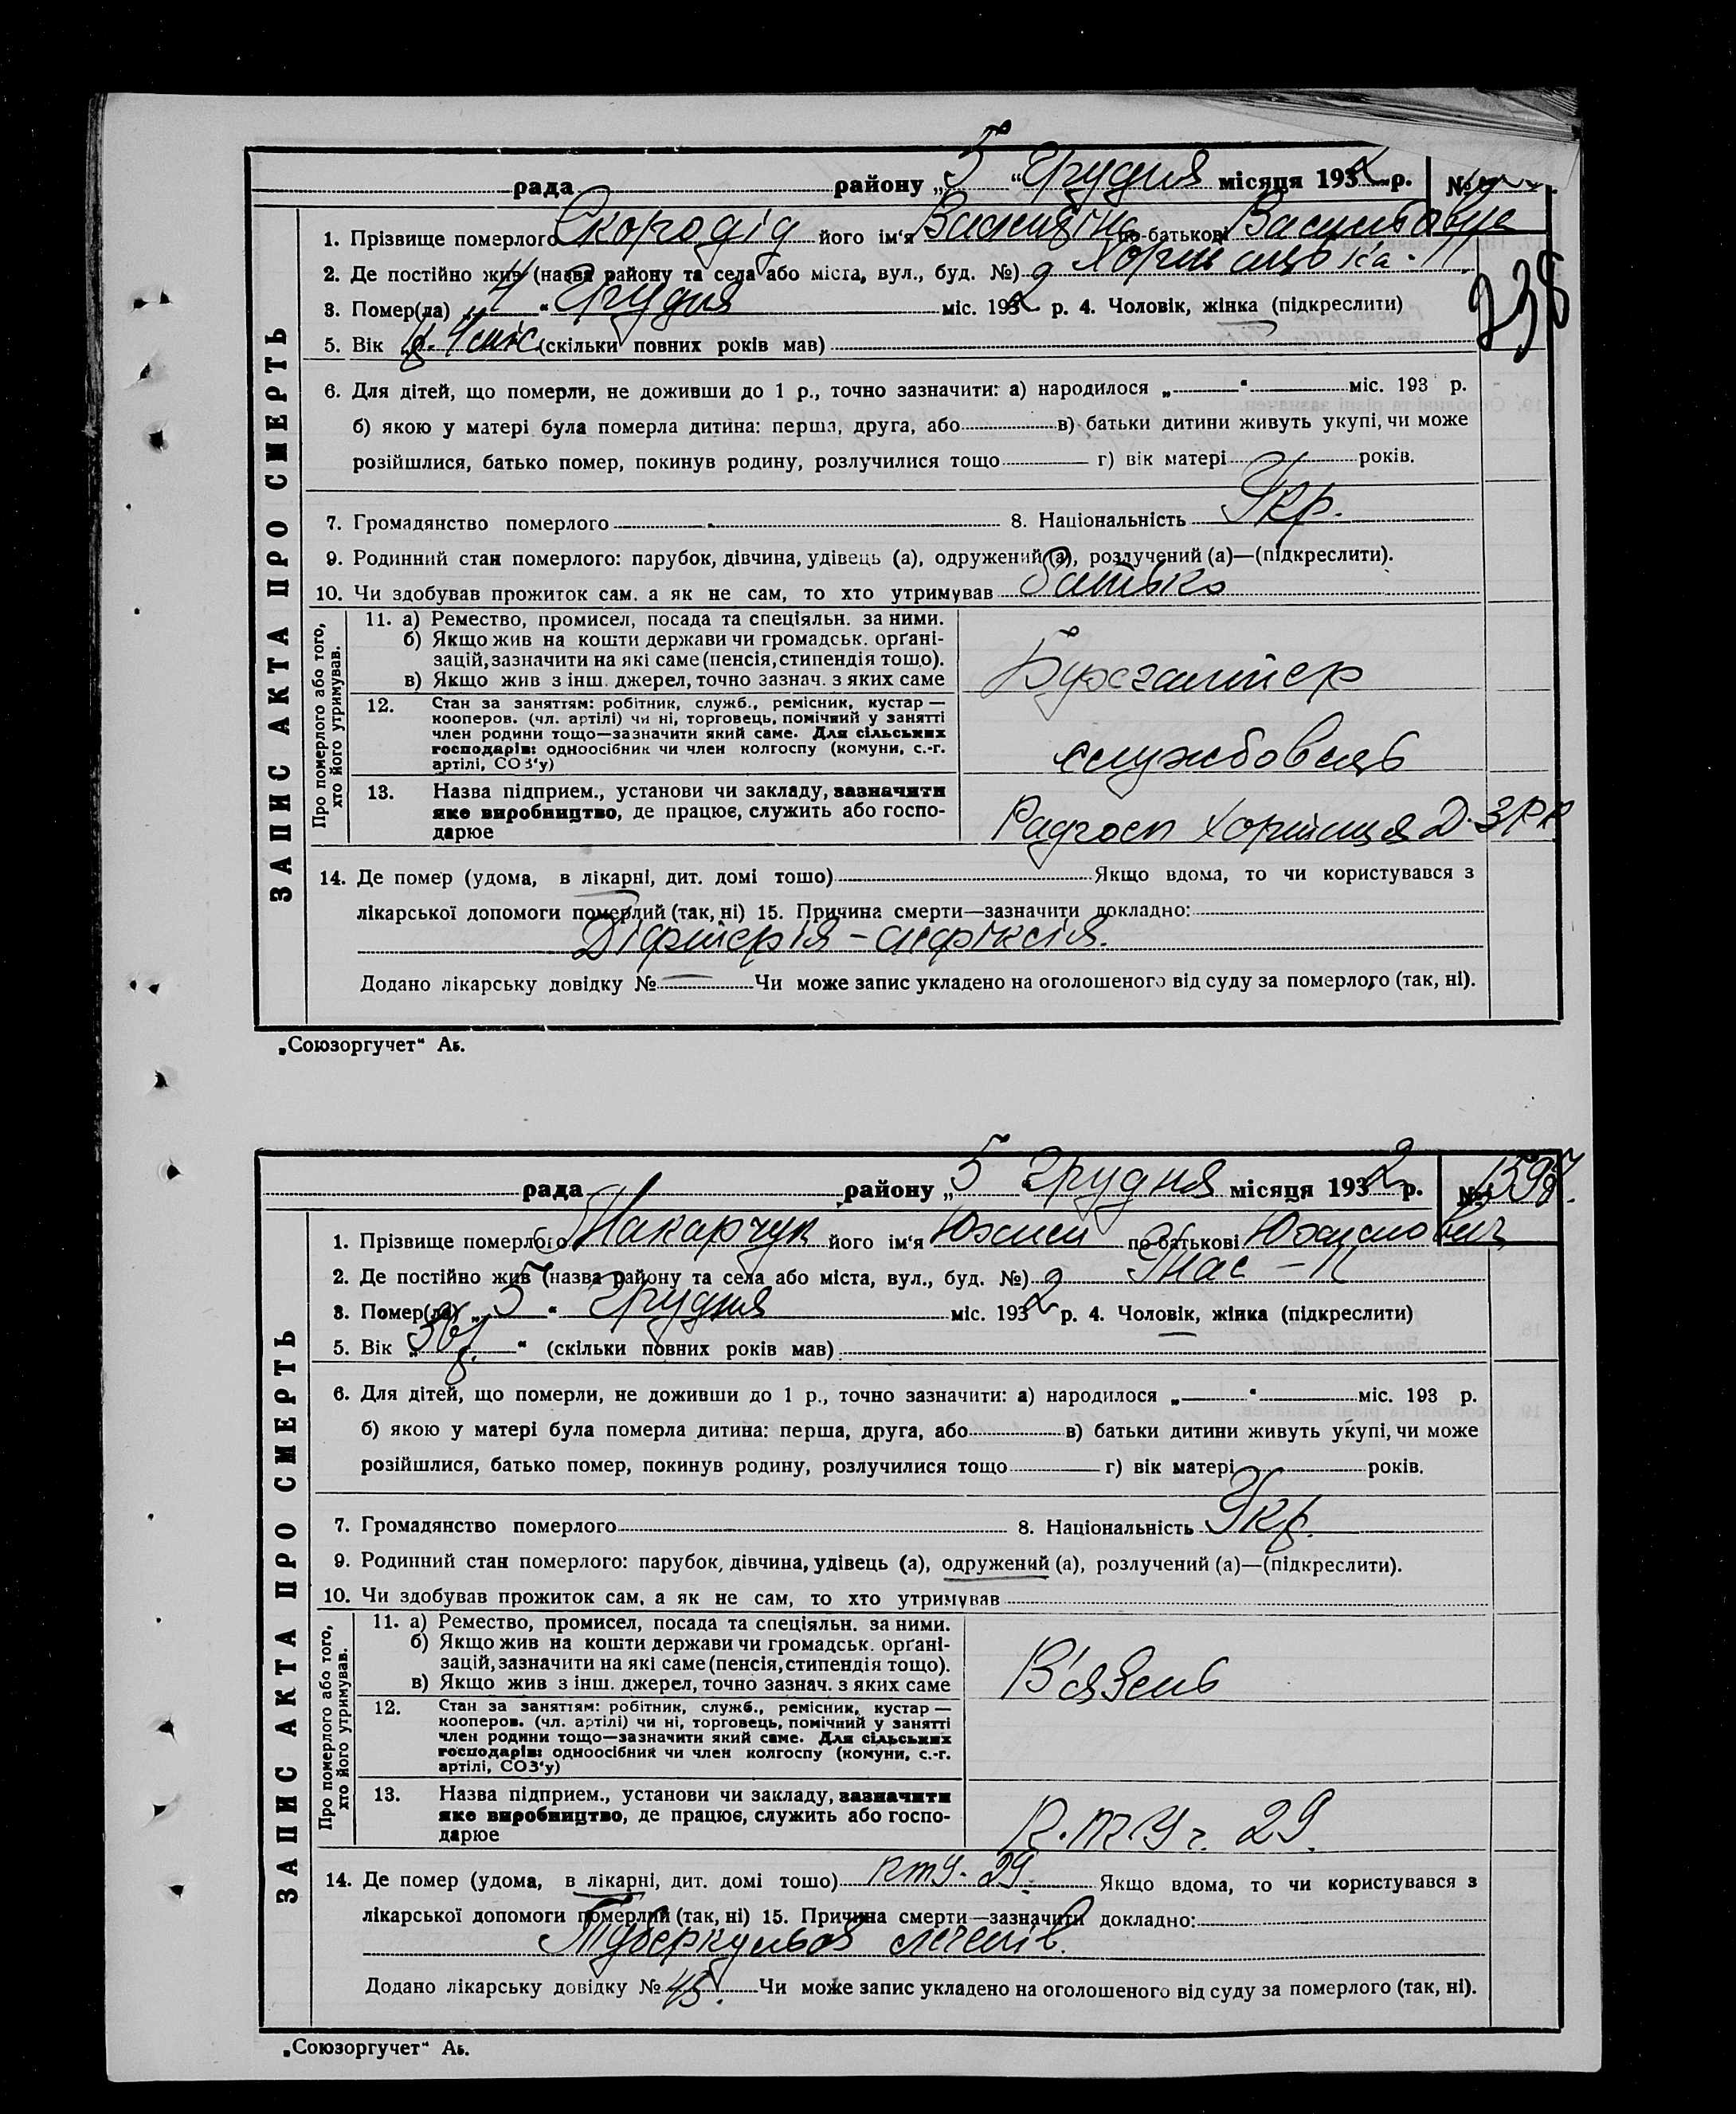 рада района „5" Грудня місяця 1932 р. №
1. Прізвище померлого Скородід його ім'я Валентина по-батькові Васильовна
2. Де постійно жив (назва району та села або міста, вул., буд. №)
3. Помер(ла) „4" Грудня міс. 1932 р. 4. Чоловік, жінка (підкреслити)
238
5. Вік (скільки повних років мав)
6. Для дітей, що померли, не доживши до 1 р., точно зазначити: а) народилося „ " міс. 193 р.
б) якою у матері була померла дитина: перша, друга, або в) батьки дитини живуть укупі, чи може
розійшлися, батько помер, покинув родину, розлучилися тощо г) вік матері років.
7. Громадянство померлого 8. Національність Укр.
9. Родинний стан померлого: парубок, дівчина, удівець (а), одружений (а), розлучений (а)—(підкреслити).
10. Чи здобував прожиток сам, а як не сам, то хто утримував батько
ЗАПИС АКТА ПРО СМЕРТЬ
Про померлого або того, хто його утримував.
11. а) Ремество, промисел, посада та спеціяльн. за ними.
б) Якщо жив на кошти держави чи громадськ. орґані-
зацій, зазначити на які саме (пенсія, стипендія тощо).
в) Якщо жив з інш. джерел, точно зазнач. з яких саме
Бухгалтер
12. Стан за заняттям: робітник, служб., ремісник, кустар —
кооперов. (чл. артілі) чи ні, торговець, помічний у занятті
член родини тощо—зазначити який саме. Для сільських
господарів: одноосібник чи член колгоспу (комуни, с.-г.
артілі, СОЗ'у)
службовець
13. Назва підприєм., установи чи закладу, зазначити
яке виробництво, де працює, служить або госпо-
дарює
Радгосп Хортиця
14. Де помер (удома, в лікарні, дит. домі тощо) Якщо вдома, то чи користувався з
лікарської допомоги померлий (так, ні) 15. Причина смерти—зазначити докладно:
Діфтерія – асфіксія.
Додано лікарську довідку № — Чи може запис укладено на оголошеного від суду за померлого (так, ні).
„Союзоргучет" Аь.
рада району „5" Грудня місяця 1932 р. №
1. Прізвище померлого Макарчук його ім'я Юхим по-батькові Юхимович
2. Де постійно жив (назва району та села або міста, вул., буд. №)
3. Помер(ла) „5" Грудня міс. 1932 р. 4. Чоловік, жінка (підкреслити)
5. Вік „36 р." (скільки повних років мав)
6. Для дітей, що померли, не доживши до 1 р., точно зазначити: а) народилося „ " міс. 193 р.
б) якою у матері була померла дитина: перша, друга, або в) батьки дитини живуть укупі, чи може
розійшлися, батько помер, покинув родину, розлучилися тощо г) вік матері років.
7. Громадянство померлого 8. Національність Укр.
9. Родинний стан померлого: парубок, дівчина, удівець (а), одружений (а), розлучений (а)—(підкреслити).
10. Чи здобував прожиток сам, а як не сам, то хто утримував
ЗАПИС АКТА ПРО СМЕРТЬ
Про померлого або того, хто його утримував.
11. а) Ремество, промисел, посада та спеціяльн. за ними.
б) Якщо жив на кошти держави чи громадськ. орґані-
зацій, зазначити на які саме (пенсія, стипендія тощо).
в) Якщо жив з інш. джерел, точно зазнач. з яких саме
В'язень
12. Стан за заняттям: робітник, служб., ремісник, кустар —
кооперов. (чл. артілі) чи ні, торговець, помічний у занятті
член родини тощо—зазначити який саме. Для сільських
господарів: одноосібник чи член колгоспу (комуни, с.-г.
артілі, СОЗ'у)
13. Назва підприєм., установи чи закладу, зазначити
яке виробництво, де працює, служить або госпо-
дарює
29.
14. Де помер (удома, в лікарні, дит. домі тощо) 29. Якщо вдома, то чи користувався з
лікарської допомоги померлий (так, ні) 15. Причина смерти—зазначити докладно:
Туберкульоз легенів.
Додано лікарську довідку № 45. Чи може запис укладено на оголошеного від суду за померлого (так, ні).
„Союзоргучет" Аь.